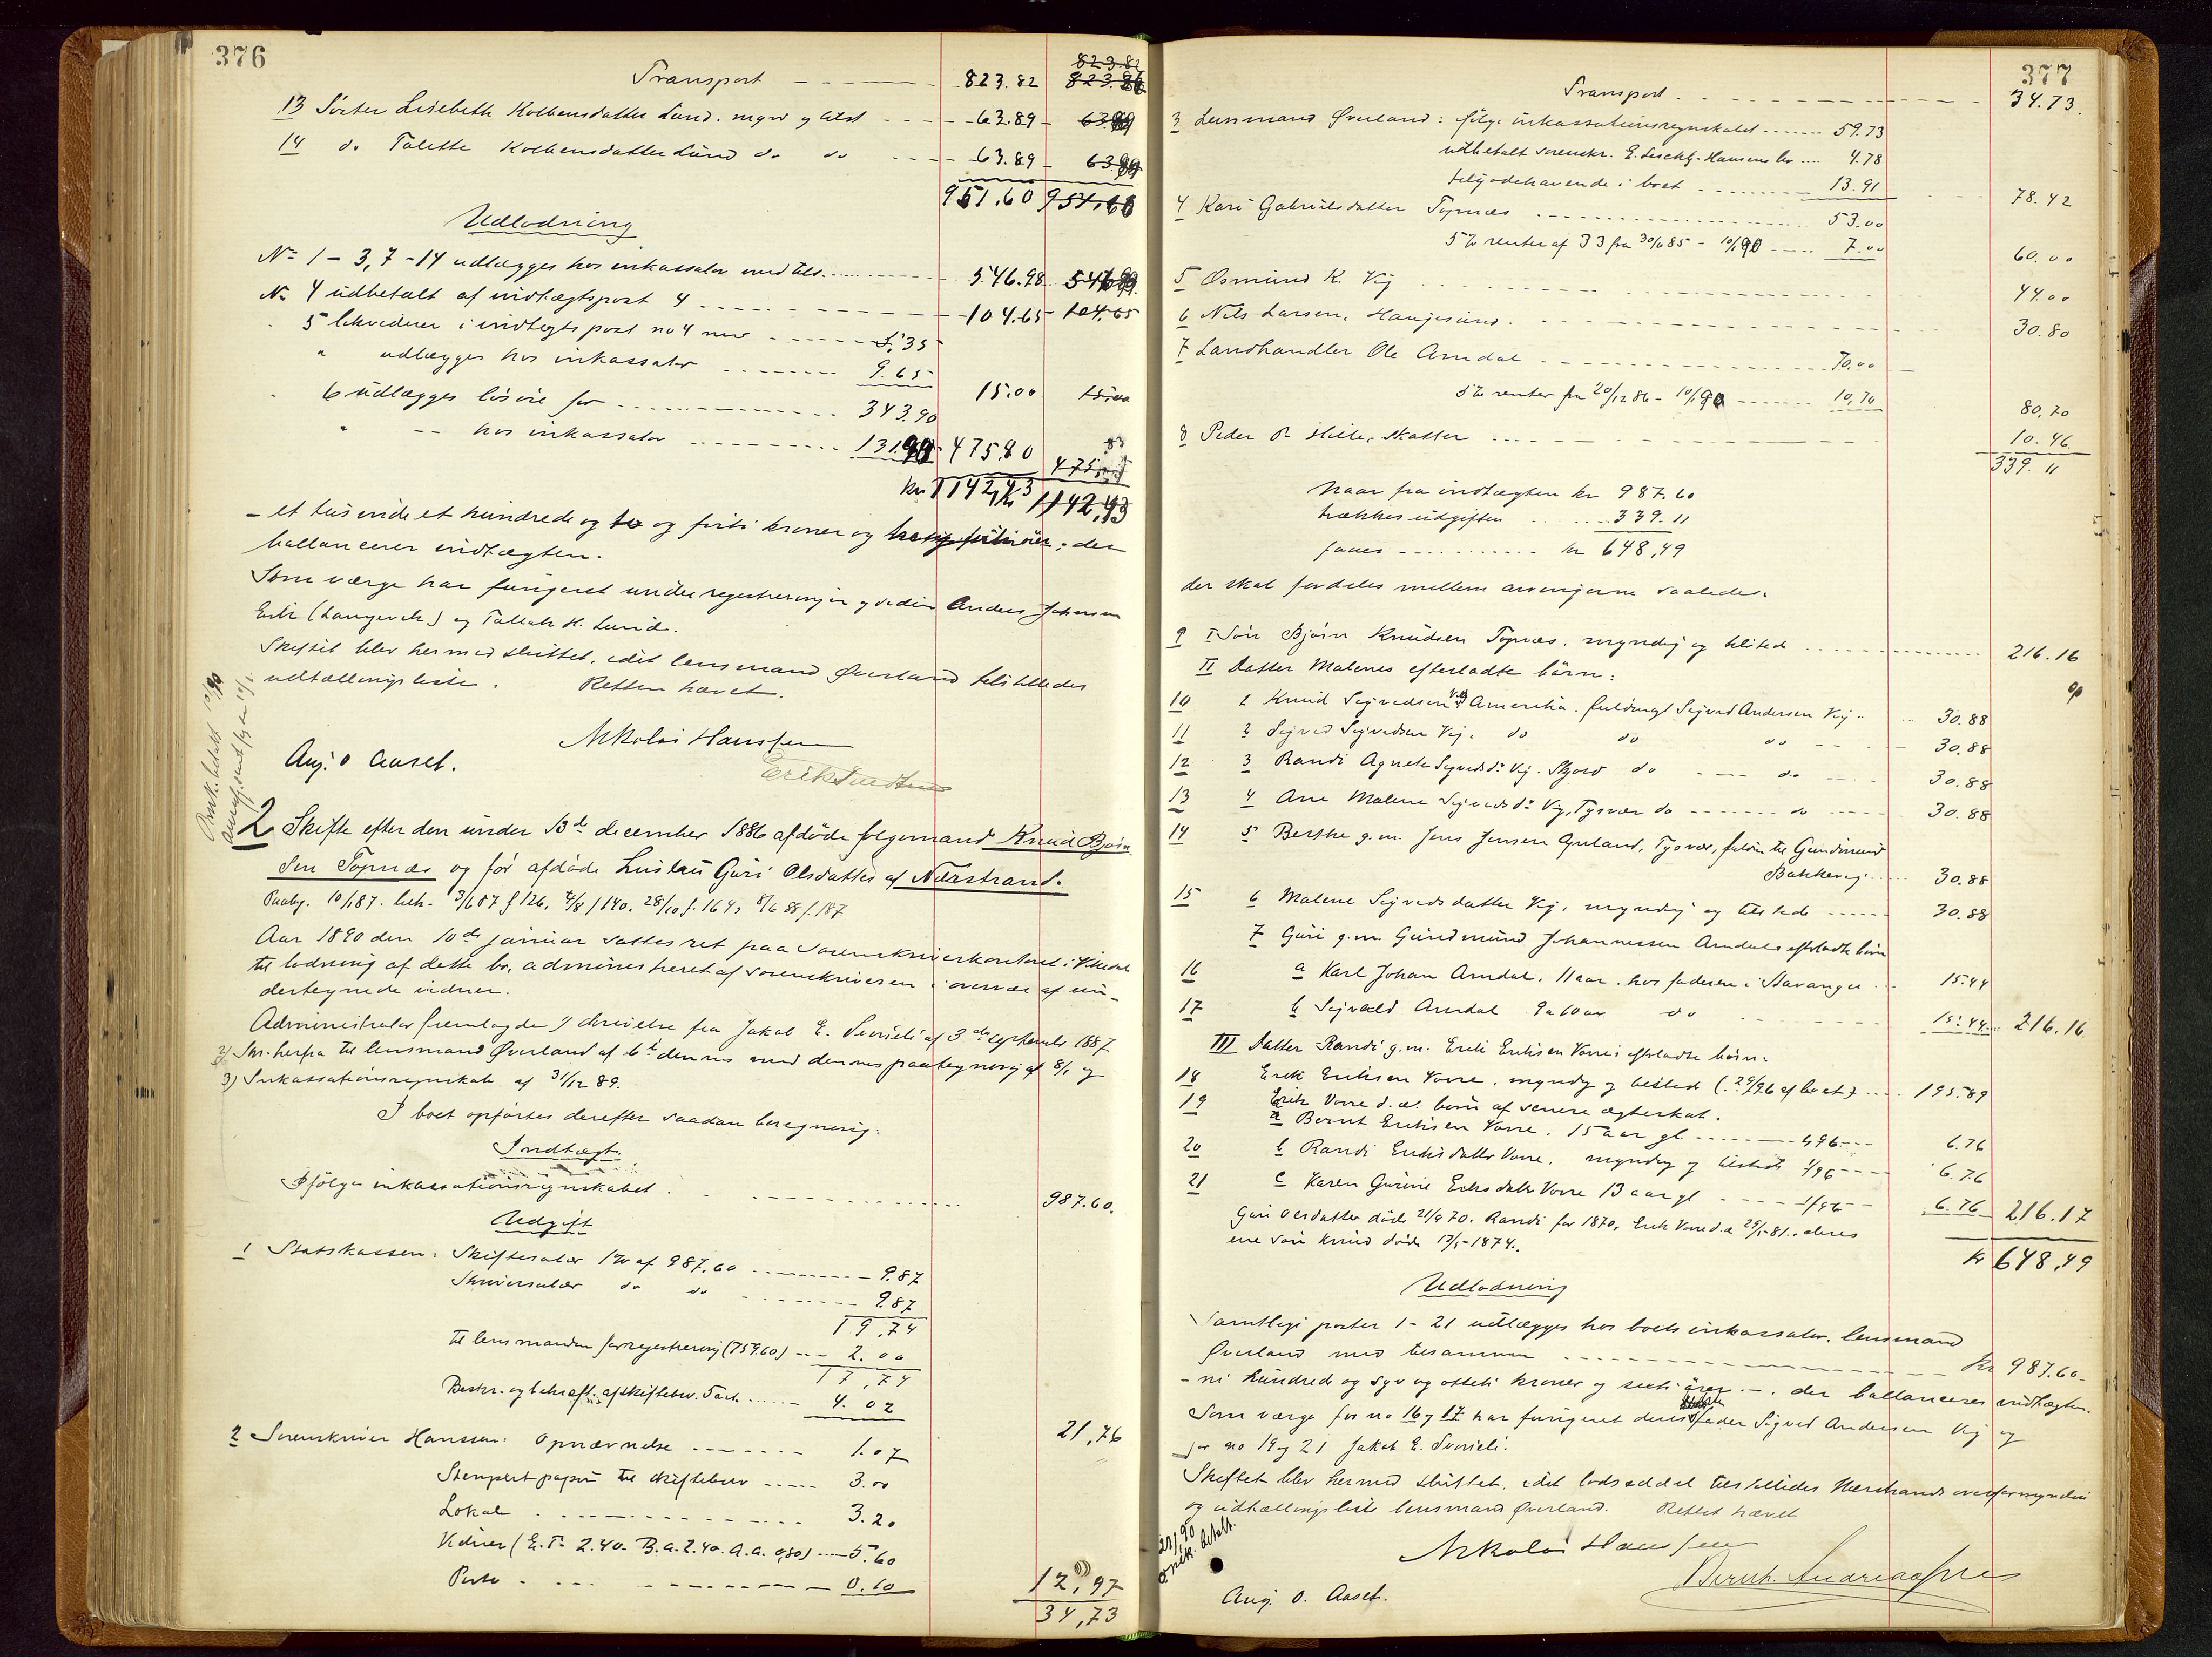 376
Transport 823.82 823.82
823.86
13 Söster Lisebeth Kolbensdatter Lund. mynd. og tilst 63.89 63.89
14 do Talette Kolbensdatter Lund do do 63.89 63.89
951.60 951.60
Udlodning
No 1-3, 7-14 udlægges hos inkassator med tils. 546.98
No 4 udbetalt af indtægtspost 4 104.65 104.65
5 likviderer i indtegtspost no 4 5.35
" udlægges hos inkassator 9.65
15.00 15.00
6 udlægges lösöre for 343.90
" — hos inkassator 131.90 475.80
kr 1142,43 kr 1142,43
- et tusinde et hundrede og to og forti kroner og ; der
ballancerer indtægten.
Som værge har fungeret under registreringen og siden Anders Johnsen
Eide (Langevik) og Tallak H. Lund.
Skiftet blev hermed sluttet, idet lensmand Øverland tilstilledes
udtællingsliste. Retten hævet.
Nikolai Hanssen
Aug. O Aaset. Erik
2 Skifte efter den under 13de december 1886 afdöde folgemand Knud Björn
sen Topnæs og för afdöde hustru Guri Olsdatter af Nærstrand.
Paabg. 10/1 87. beh. 3/6 87 f 126, 4/8 f 140. 28/10 f. 164, 8/6 88 f. 187
Aar 1890 den 10de januar sattes ret paa sorenskriverkontoret i Vikedal
til lodning af dette bo, administreret af sorenskriveren i overvær af un-
dertegnede vidner.
Administrator fremlagde 1) skrivelse fra Jakob E. Svineli af 3de september 1887
2) Skr. herfra til lensmand Øverland af 6te dennes med dennes paategning af 8/1 og
3) Inkassationsregnskab af 31/12 89.
I boet opförtes derefter saadan beregning:
Indtægt.
Ifölge inkassationsregnskabet 987.60.
Udgift
1 Statskassen: Skiftesalær 1% af 987,60 9.87
Skriversalær do do 9.87
19,74
til lensmanden for registrering (759.60) 2.00
17,74
Beskr. og bekræft. af skiftebrev. 5 ark. 4.02
21,76
2 Sorenskriver Hanssen: Opnævnelse 1.07
Stemplet papir til skiftebrev 3.00
Lokal 3.20
Vidner (E.T. 2.40. B.A. 2.40. A.A. 0,80) 5.60
Porto 0.10
12,97
34,73
377
Transport 34.73.
3 Lensmand Øverland: fölge inkassationsregnskabet 59.73
udbetalt sorenskr. E. Hansens bo 4.78
tilgodehavende i boet 13.91
78.42
4 Kari Gabrielsdatter Topnæs 53.00
5% renter af 33 fra 30/6 85 - 10/1 90 7.00
60.00
5 Osmund K. Vig 44.00
6 Nils Larsen, Haugesund. 30.80
7 Landhandler Ole Arndal 70.00
5% renter fra 20/12 86 - 10/1 90 10,70
80,70
8 Peder P. Hille, skatter 10.46
339.11
Naar fra indtægten kr 987.60
trækkes udgiften 339.11
faaes kr 648,49
der skal fordeles mellem arvingerne saaledes:
9 I Sön Björn Knudsen Topnæs, myndig og tilstede 216.16
II Datter Malenes efterladte börn:
10 1 Knud Sigvedsen Vig Amerika. fuldmægt Sigved Andersen Vig 30.88
11 2 Sigved Sigvedsen Vig. do do do 30.88
12 3 Randi Agnete Sigvedsdr Vig. Skjold do do 30.88
13 4 Ane Malene Sigvedsdr Vig, Tysvær do do 30.88
14 5 Berthe g.m. Jens Jensen Apeland, Tysvær, fuldm til Gundmund
Bakkevig 30.88
15 6 Malene Sigvedsdatter Vig, myndig og tilstede 30.88
7 Guri g.m. Gundmund Johannessen Arndals efterladte börn
16 a Karl Johan Arndal, 11 aar. hos faderen i Stavanger 15.44
17 b Sigvald Arndal 9 a 10 aar do 15.44 216.16
III Datter Randi g.m. Erik Eriksen Vorre's efterladte börn:
18 Erik Eriksen Vorre, myndig og tilsted (29/96 af boet) 195.89
19 Erik Vorre d.æ. börn af senere ægteskab.
a Bernt Eriksen Vorre, 15 aar gl 1/96 6.76
20 b Randi Eriksdatter Vorre, myndig og tilstede 1/96 6.76
21 c Karen Gurine Eriksdatter Vorre 13 aar gl 1/96 6.76 216.17
Guri Olsdatter död 21/9 70. Randi för 1870, Erik Vorre d.æ 29/5-81. deres
ene sön Knud döde 17/5-1874.
kr 648,49
Udlodning
Samtlige poster 1-21 udlægges hos boets inkassator, lensmand
Øverland med tilsammen kr 987.60-
- ni hundrede og syv og otteti kroner og seksti ører -, der ballancerer indtægten.
Som værge for no 16 og 17 har fungeret deres fader Sigved Andersen Vig og
for no 19 og 21 Jakob E. Svineli.
Skiftet blev hermed sluttet, idet lodseddel tilstilledes Nærstrands overformynderi
og udtællingsliste lensmand Øverland. Rettet hævet
Nikolai Hanssen
Aug. O. Aaset. Bernh. Andreassen